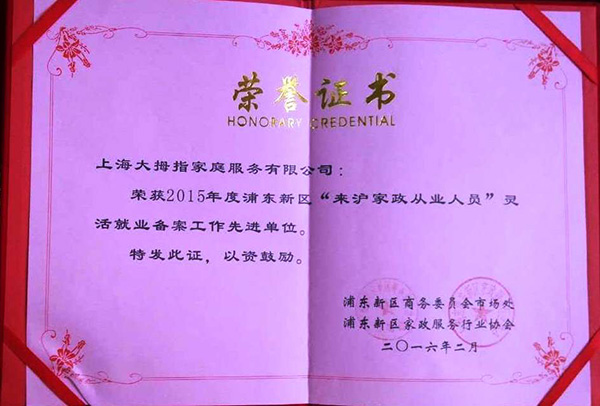 荣誉证书
HONORARY CREDENTIAL
上海大拇指家庭服务有限公司：
荣获2015年度浦东新区“来沪家政从业人员”灵
活就业备案工作先进单位。
特发此证，以资鼓励。
浦东新区商务委员会市场处
浦东新区家政服务行业协会
二〇一六年二月